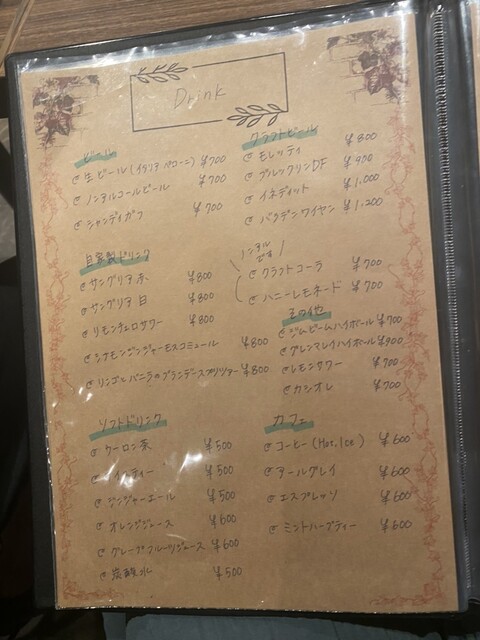 Drink
ビール
生ビール(イタリア ペローニ) ¥700
ノンアルコールビール ¥700
シャンディガフ ¥700
クラフトビール
モレッティ ¥800
ブルックリンDF ¥900
イネディット ¥1,000
バイデンワイヤン ¥1,200
自家製ドリンク
サングリア赤 ¥800
サングリア白 ¥800
リモンチェロサワー ¥800
シナモンジンジャーモスコミュール ¥800
リンゴとバニラのブランデースプリツァー ¥800
ノンアル
です!
クラフトコーラ ¥700
ハニーレモネード ¥700
その他
ジムビームハイボール ¥700
グレンマレイハイボール ¥900
レモンサワー ¥700
カシオレ ¥700
ソフトドリンク
ウーロン茶 ¥500
アイスティー ¥500
ジンジャーエール ¥500
オレンジジュース ¥600
グレープフルーツジュース ¥600
炭酸水 ¥500
カフェ
コーヒー(Hot. Ice) ¥600
アールグレイ ¥600
エスプレッソ ¥600
ミントハーブティー ¥600